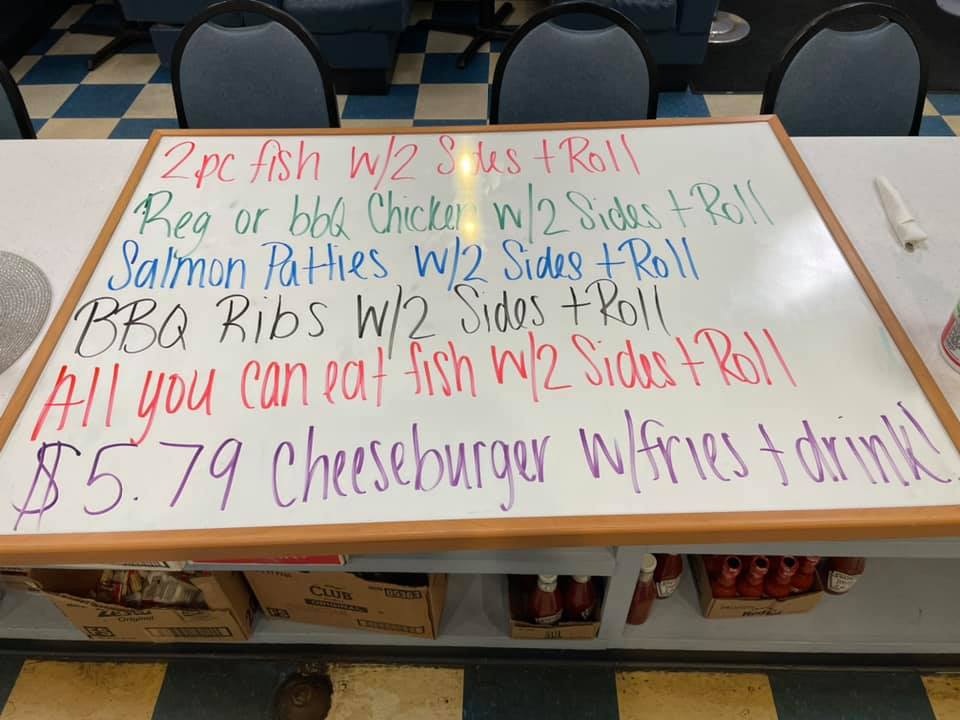 2pc fish w/2 Sides + Roll
Reg or bbQ Chicken w/2 Sides + Roll
Salmon Patties w/2 Sides + Roll
BBQ Ribs w/2 Sides + Roll
All you can eat fish w/2 Sides + Roll
$5.79 Cheeseburger w/fries + drink!
CLUB
ORIGINAL
05363
Original